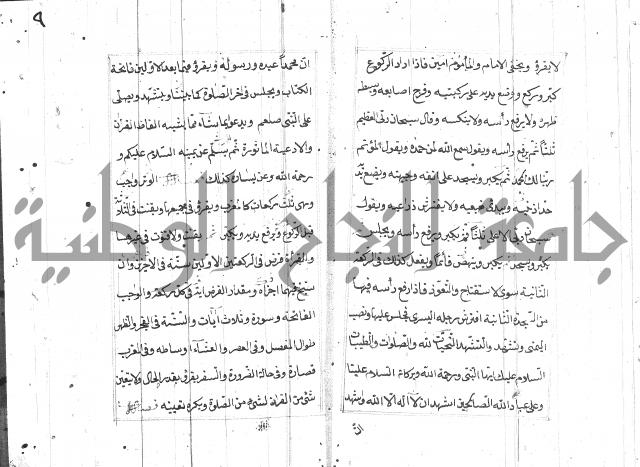 ٩
لا يقرؤ ويخفى الامام والمأموم امين فاذا اراد الركوع
كبر وركع ووضع يديه على ركبتيه وفرج اصابعه وبسط
ظهره ولا يرفع رأسه ولا ينكسه وقال سبحان ربى العظيم
ثلثا ثم يرفع رأسه ويقول سمع الله لمن حمده ويقول المؤتم
ربنا لك الحمد ثم يكبر ويسجد على انفه وجبهته ويضع يديه
حذاء اذنيه ويبدى ضبعيه ولا يفترش ذراعيه ويقول
سبحان ربى الاعلى ثلثا ثم يكبر ويرفع رأسه ويجلس
يكبر ويسجد ثم يكبر وينهض قائما ويفعل كذلك فى الركعة
الثانية سوى الاستفتاح والتعوذ فاذا رفع رأسه فيها
من السجدة الثانية افترش رجله اليسرى فجلس عليها ونصب
اليمنى وتشهد والتشهد التحيات لله والصلوات والطيبات
السلام عليك ايها النبى ورحمة الله وبركاته السلام علينا
وعلى عباد الله الصالحين اشهد ان لا اله الا الله واشهد
ان
ان محمدا عبده ورسوله ويقرؤ فيما بعد الاوليين فاتحة
الكتاب ويجلس فى اخر الصلوة كما بينا ويتشهد ويصلى
على النبى صلعم ويدعو بما شاء مما يشبه الفاظ القران
والادعية المأثورة ثم يسلم عن يمينه السلام عليكم و
رحمة الله وعن يساره كذلك الوتر واجب
وهى ثلث ركعات كالمغرب ويقرؤ فى جميعها ويقنت فى الثالثة
قبل الركوع ويرفع يديه ويكبر ثم يقنت ولا قنوت فى غيرها
والقراءة فرض فى الركعتين الاوليين سنة فى الاخريين وان
سبح فيهما اجزأه ومقدار الفرض اية فى كل ركعة والواجب
الفاتحة وسورة او ثلاث آيات والسنة فى الفجر والظهر
طوال المفصل وفى العصر والعشاء اوساطه وفى المغرب
قصاره وفى حالة الضرورة والسفر يقرؤ بقدر الحال ولا يتعين
شئ من القران لشئ من الصلوة ويكره تعيينه
جامعة النجاح الوطنية